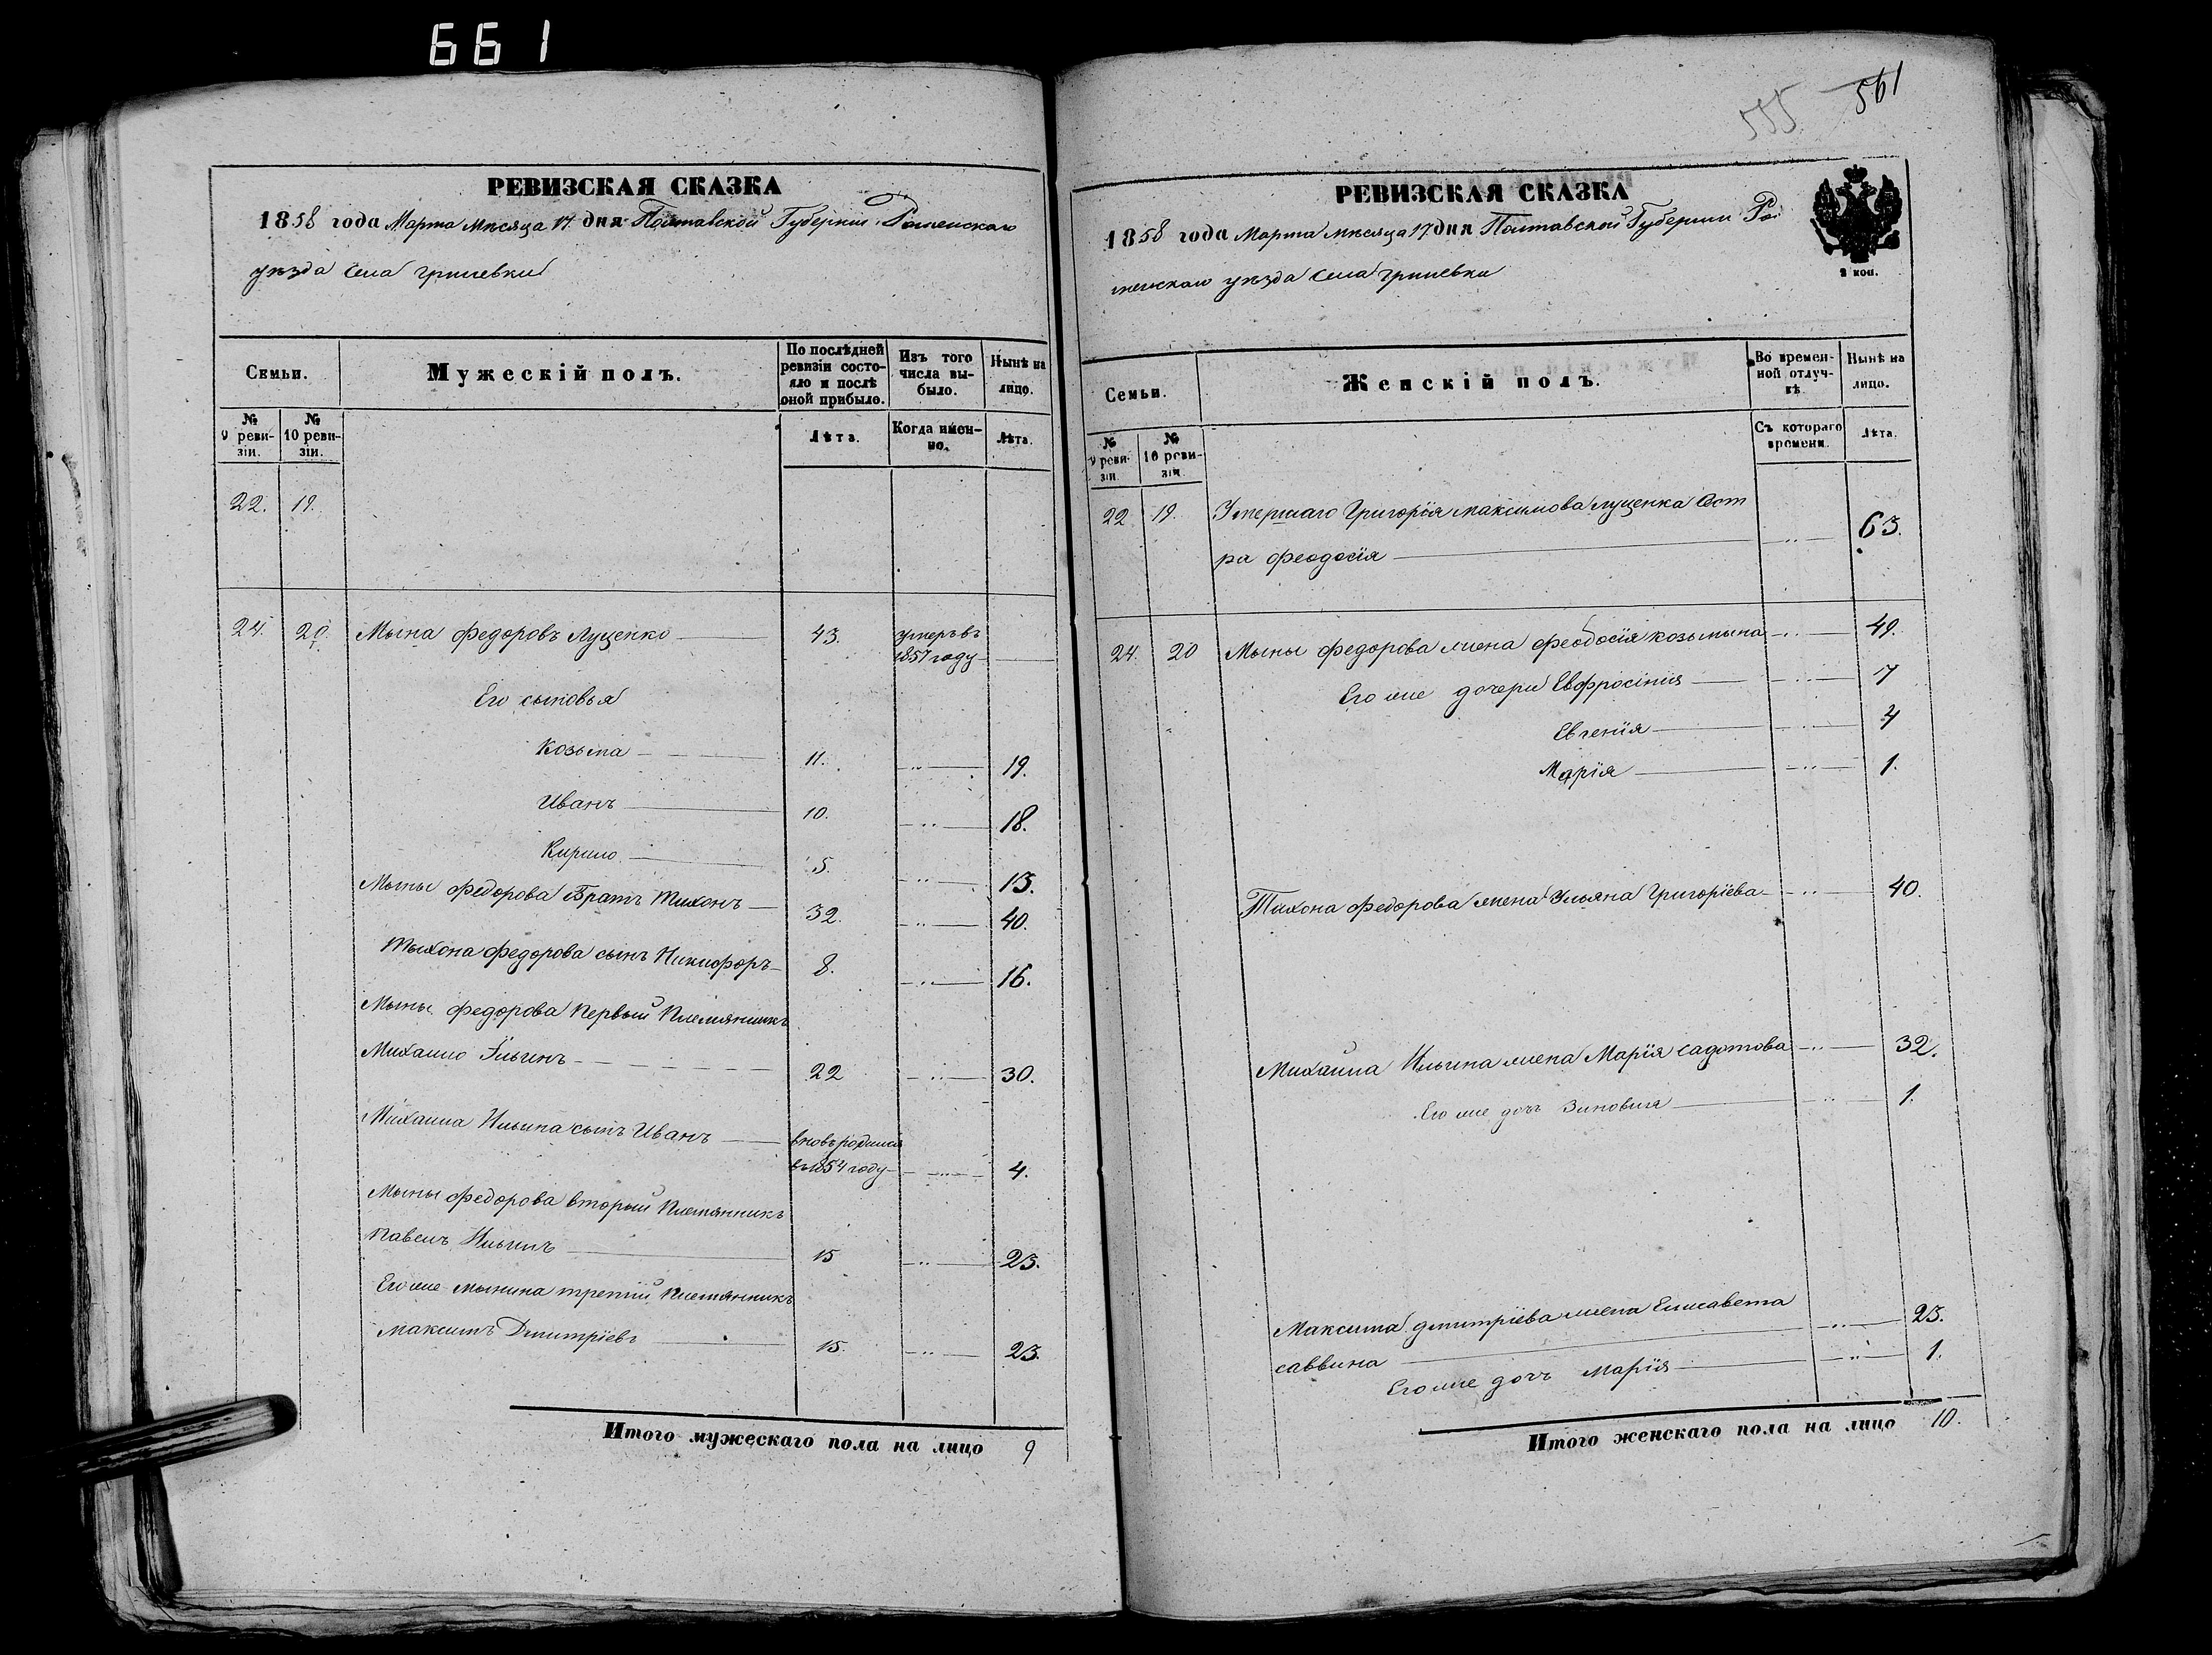 661
РЕВИЗСКАЯ СКАЗКА
1858 года Марта мѣсяца 17 дня Полтавской Губерніи Роменскаго
уѣзда села Гришевки
Семьи.
Мужескій полъ.
По послѣдней ревизіи состояло и послѣ оной прибыло.
Изъ того числа выбыло.
Нынѣ на лицо.
№ 9 ревизіи.
№ 10 ревизіи.
Лѣта.
Когда именно.
Лѣта.
22. 19.
24. 20. Мына Федоровъ Луценко 43. умеръ въ
1857 году
Его сыновья
Козьма 11. 19.
Иванъ 10. 18.
Кирило 5. 13.
Мыны Федорова Братъ Тихонъ 32. 40.
Тихона Федорова сынъ Никифоръ 8. 16.
Мыны Федорова Первый Племянникъ
Михайло Ильинъ 22 30.
Михаила Ильина сынъ Иванъ вновь родился
въ 1854 году 4.
Мыны Федорова второй Племянникъ
Павелъ Ильинъ 15 23.
Его же Мынина третій Племянникъ
Максимъ Дмитріевъ 15. 23.
Итого мужескаго пола на лицо 9
555 561
РЕВИЗСКАЯ СКАЗКА
1858 года Марта мѣсяца 17 дня Полтавской Губерніи Ро
менскаго уѣзда села Гришевки
2 коп.
Семьи.
Женскій полъ.
Во временной отлучкѣ.
Нынѣ на лицо.
№ 9 ревизіи.
№ 10 ревизіи.
Съ котораго времени.
Лѣта.
22 19. Умершаго Григорія Максимова Луценка Сест
ра Феодосія 63.
24. 20 Мыны Федорова жена Феодосія Козьмына 49.
Его же дочери Евфросинія 7
Евгенія 4
Марія 1.
Тихона Федорова жена Ульяна Григоріева 40.
Михаила Ильина жена Марія Садотова 32.
Его же дочь Зиновія 1.
Максима Дмитріева жена Елисавета
Саввина 23.
Его же дочь Марія 1.
Итого женскаго пола на лицо 10.